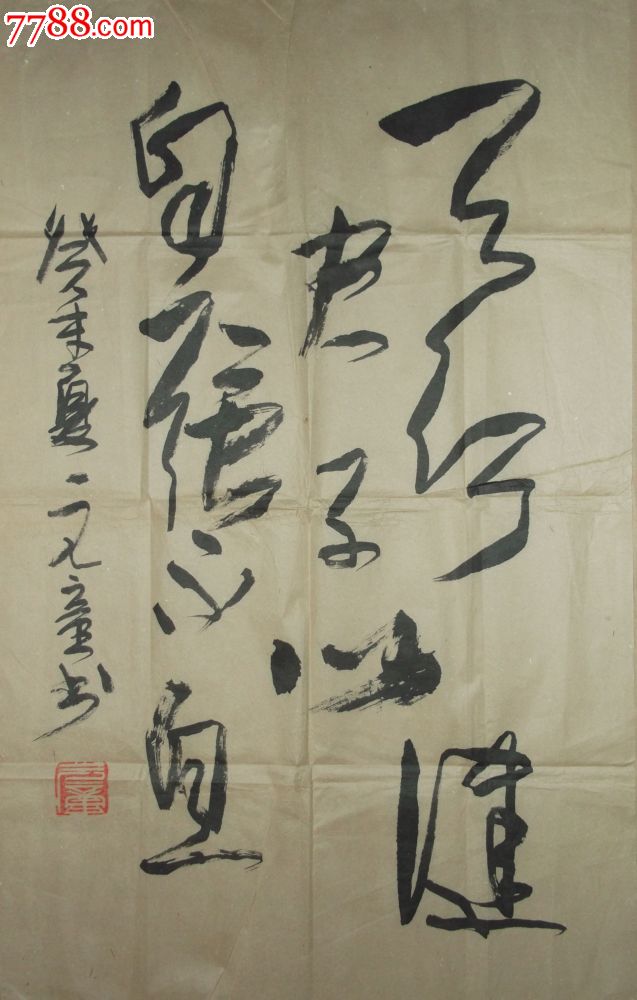 7788.com
天行健
君子以
自强不息
癸未夏元童书